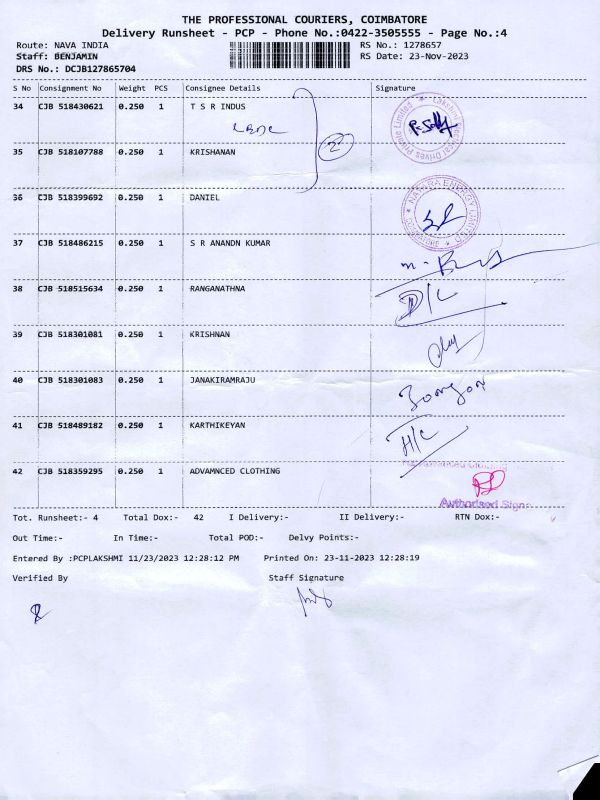 THE PROFESSIONAL COURIERS, COIMBATORE
Delivery Runsheet - PCP - Phone No.:0422-3505555 - Page No.:4
Route: NAVA INDIA RS No.: 1278657
Staff: BENJAMIN RS Date: 23-Nov-2023
DRS No.: DCJB127865704
S No Consignment No Weight PCS Consignee Details Signature
34 CJB 518430621 0.250 1 T S R INDUS
2
35 CJB 518107788 0.250 1 KRISHANAN
36 CJB 518399692 0.250 1 DANIEL
NATURA ENERGY
37 CJB 518486215 0.250 1 S R ANANDN KUMAR
38 CJB 518515634 0.250 1 RANGANATHNA
D/L
39 CJB 518301081 0.250 1 KRISHNAN
40 CJB 518301083 0.250 1 JANAKIRAMRAJU
41 CJB 518489182 0.250 1 KARTHIKEYAN
H/C
42 CJB 518359295 0.250 1 ADVAMNCED CLOTHING
Authorised Sign
Tot. Runsheet:- 4 Total Dox:- 42 I Delivery:- II Delivery:- RTN Dox:-
Out Time:- In Time:- Total POD:- Delvy Points:-
Entered By :PCPLAKSHMI 11/23/2023 12:28:12 PM Printed On: 23-11-2023 12:28:19
Verified By Staff Signature